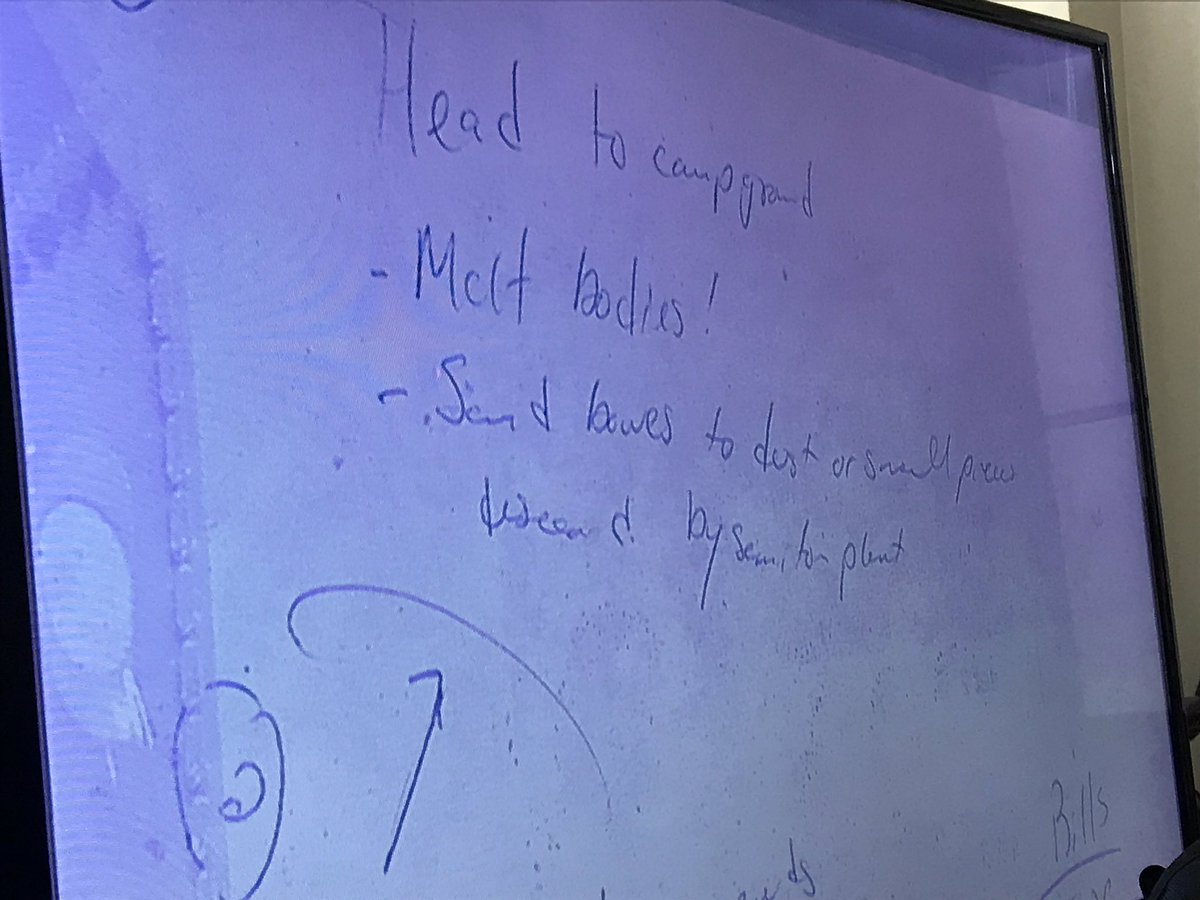 Head to campground
- Melt bodies!
- Sand bones to dust or small pieces
discard by sanitoin plant
Bills